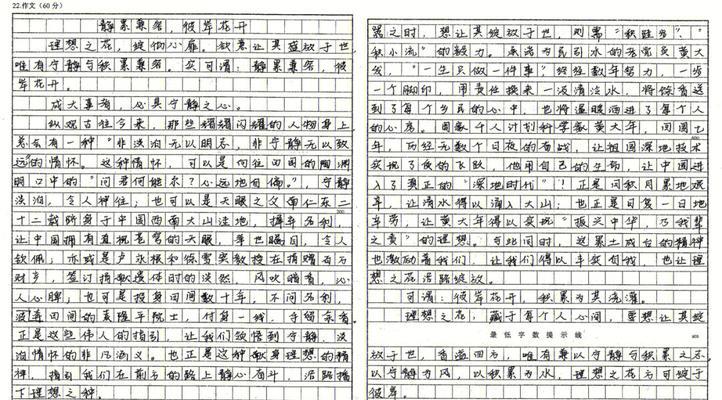 22.作文(60分)
静累兼容，彼岸花开
理想之花，绽你心扉。欲意让其盛放于世，
唯有守静与积累兼容。实可谓：静累兼容，彼
岸花开。
成大事者，必具守静之心。
纵观古往今来，那些熠熠闪耀的人物身上，
总会有一种“非淡泊无以明志，非宁静无以致
远的情怀。这种情怀，可以是向往田园的陶渊
明口中的“问君何能尔？心远地自偏。”，宁静
淡泊，令人神往；也可以是天眼之父南仁东二
十二载跻身于中国西南大山洼地，摒弃名利，
让中国拥有直视苍穹的天眼，举世瞩目，令人
钦佩；亦或是卢永根和徐雪宾教授在捐赠百万
财产，签订捐献遗体时的淡然，风吹暗香，沁
人心脾；也可是投身田间数十年，不问名利，
浸透田间的袁隆平院士，付身一线，守得余香
正是这些伟人的指引，让我们领悟到宁静，淡
泊情怀的非凡涵义。也正是这种献身理想的精
神，指引我们在前方的路上静心奋斗，沿路播
下理想之种。
器之时，想让其绽放于世，则需“积跬步”、“
积小流”的毅力。承诺为民引水的老党员黄大
发，“一生只做一件事”经经数年努力，一步
一个脚印，用责任换来一汲清渎水，将馀香送
到了每个乡民的心中，也将温暖洒进了每个人
的心房。国数千人计划科学数黄大年，回国七
年，历经无数个日夜的奋战，让祖国深地技术
实现了质的飞跃，他用自己的生命，让中国进
入了真正的“深地时代”！正是因积月累地艰
辛，让清水得以涌入大山；也正是日复一日地
辛劳，让黄大年得以实现“振兴中华，乃我辈
之责”的理想。与此同时，这累土成台的精神
也激励着我们，让我们得以丰实自我，也让理
想之花沿路绽放。
可谓：彼岸花开，积累为其浇灌。
理想之花，藏于每个人心间，要想让其绽
最低字数提示线
放于世，香溢四方，唯有兼以守静与积累之态
以守静为风，以积累为水，理想之花方可绽于
彼岸。